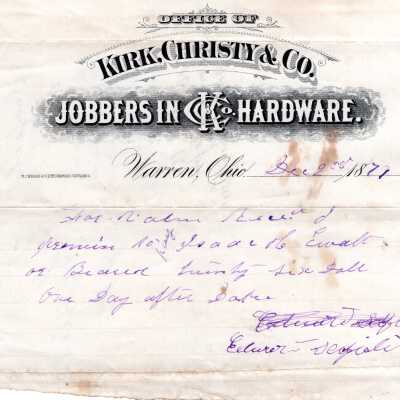 OFFICE OF
KIRK, CHRISTY & Co.
JOBBERS IN KCCo. HARDWARE.
Warren, Ohio, Dec 2nd 1879
For Value Receved
promis to Isaac H Ewalt
or Bearer six Doll
One Day after Date
Edward